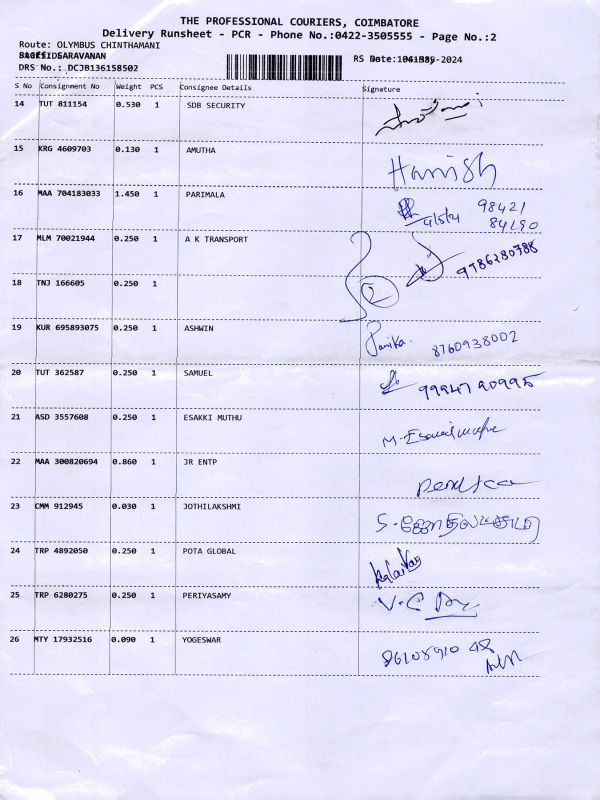 THE PROFESSIONAL COURIERS, COIMBATORE
Delivery Runsheet - PCR - Phone No.:0422-3505555 - Page No.:2
Route: OLYMBUS CHINTHAMANI
SARAVANAN
DRS No.: DCJB136158502
S No Consignment No Weight PCS Consignee Details Signature
14 TUT 811154 0.530 1 SDB SECURITY
15 KRG 4609703 0.130 1 AMUTHA Harrish
16 MAA 704183033 1.450 1 PARIMALA 4/5/24 98421
84190
17 MLM 70021944 0.250 1 A K TRANSPORT 9786280788
18 TNJ 166605 0.250 1
19 KUR 695893075 0.250 1 ASHWIN 8760938002
20 TUT 362587 0.250 1 SAMUEL
21 ASD 3557608 0.250 1 ESAKKI MUTHU
22 MAA 300820694 0.860 1 JR ENTP
23 CMM 912945 0.030 1 JOTHILAKSHMI S.ஜோதிலட்சுமி
24 TRP 4892050 0.250 1 POTA GLOBAL
25 TRP 6280275 0.250 1 PERIYASAMY
26 MTY 17932516 0.090 1 YOGESWAR